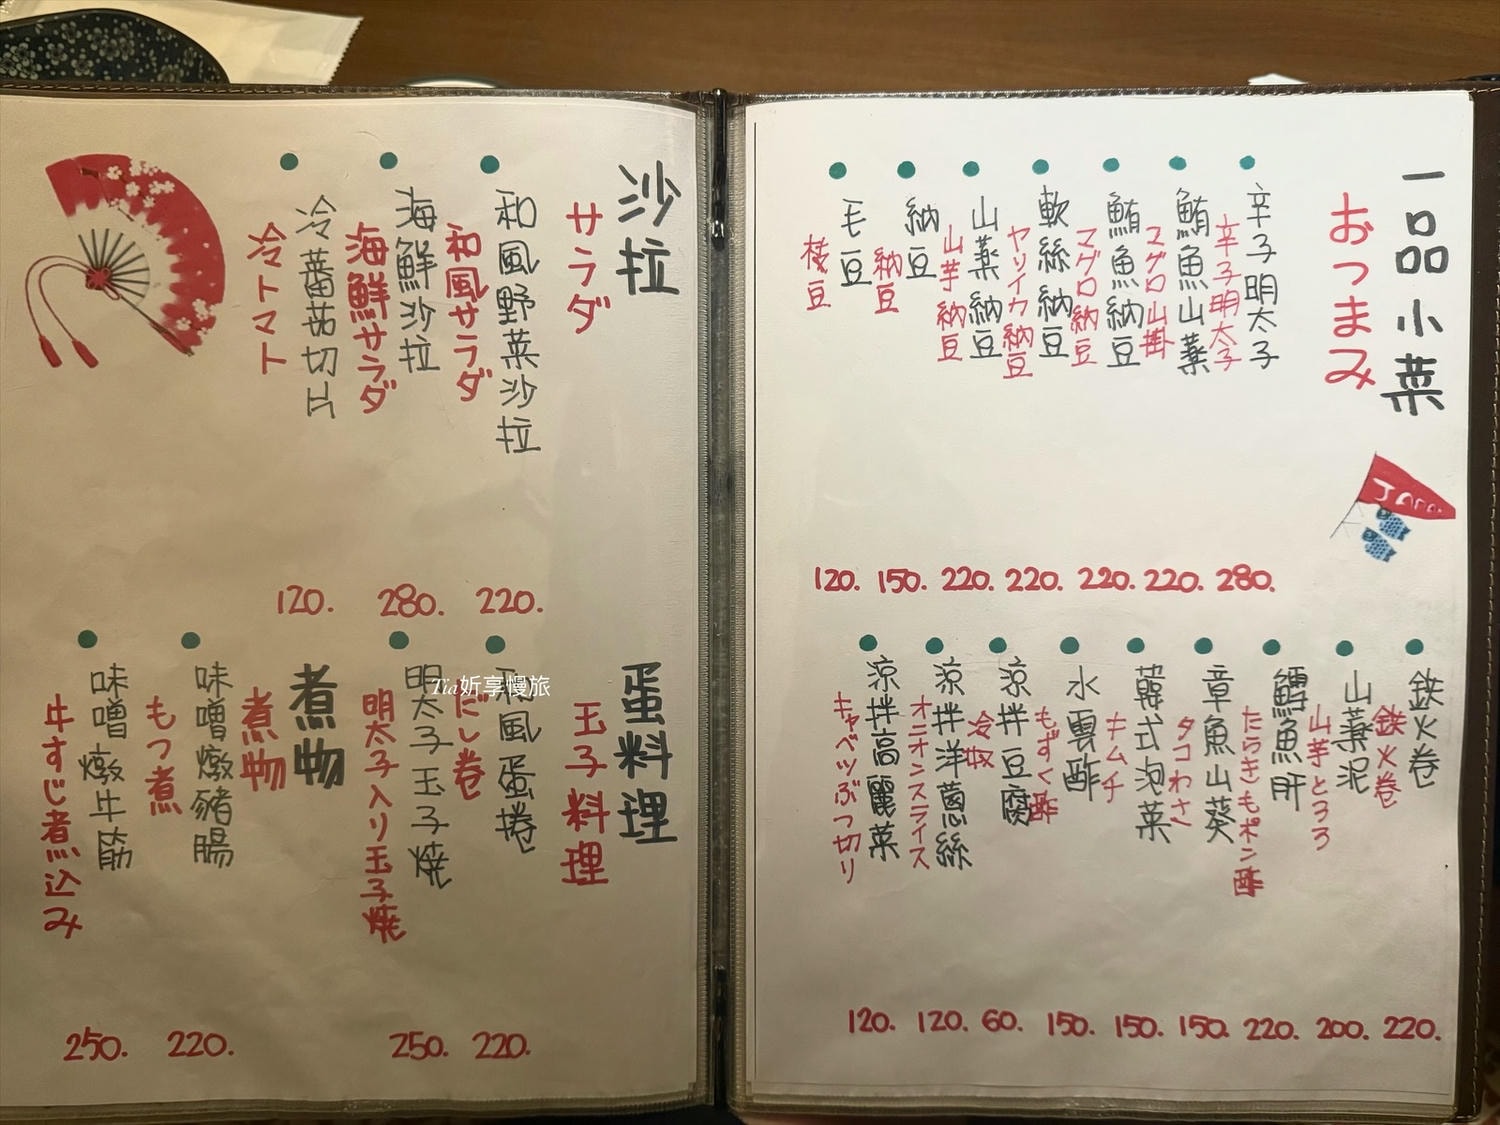 一品小菜
おつまみ
辛子明太子
辛子明太子
280.
鮪魚山薬
マグロ山掛
220.
鮪魚納豆
マグロ納豆
220.
軟絲納豆
ヤリイカ納豆
220.
山薬納豆
山芋納豆
220.
納豆
納豆
150.
毛豆
枝豆
120.
JAPA
鉄火卷
鉄火卷
220.
山薬泥
山芋とろろ
200.
鱈魚肝
たらきもポン酢
220.
章魚山葵
タコわさ
150.
韓式泡菜
キムチ
150.
水雲酢
もずく酢
150.
涼拌豆腐
冷奴
60.
涼拌洋蔥絲
オニオンスライス
120.
涼拌高麗菜
キャベツぶつ切り
120.
沙拉
サラダ
和風野菜沙拉
和風サラダ
220.
海鮮沙拉
海鮮サラダ
280.
冷蕃茄切片
冷トマト
120.
蛋料理
玉子料理
和風蛋捲
だし卷
220.
明太子玉子燒
明太子入り玉子燒
250.
煮物
煮物
味噌燉豬腸
もつ煮
220.
味噌燉牛筋
牛すじ煮込み
250.
Tia妡享慢旅